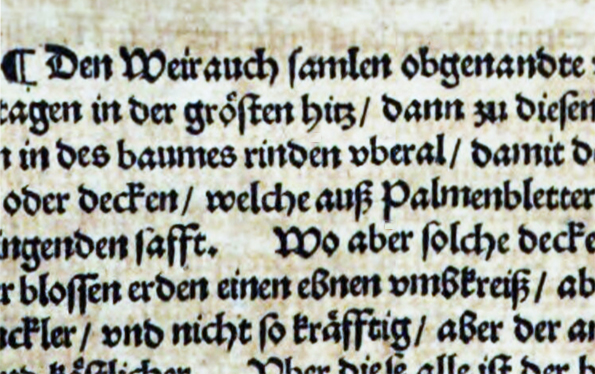 ¶ Den Weirauch samlen obgenandte
tagen in der groͤsten hitz/ dann zu diesen
in des baumes rinden vberal/ damit
oder decken/ welche auß Palmenbletter
ingenden safft. Wo aber solche decke
r blossen erden einen eßnen vmbkreiß/ ab
uckler/ vnd nicht so kraͤfftig/ aber der
Vber diese alle ist der